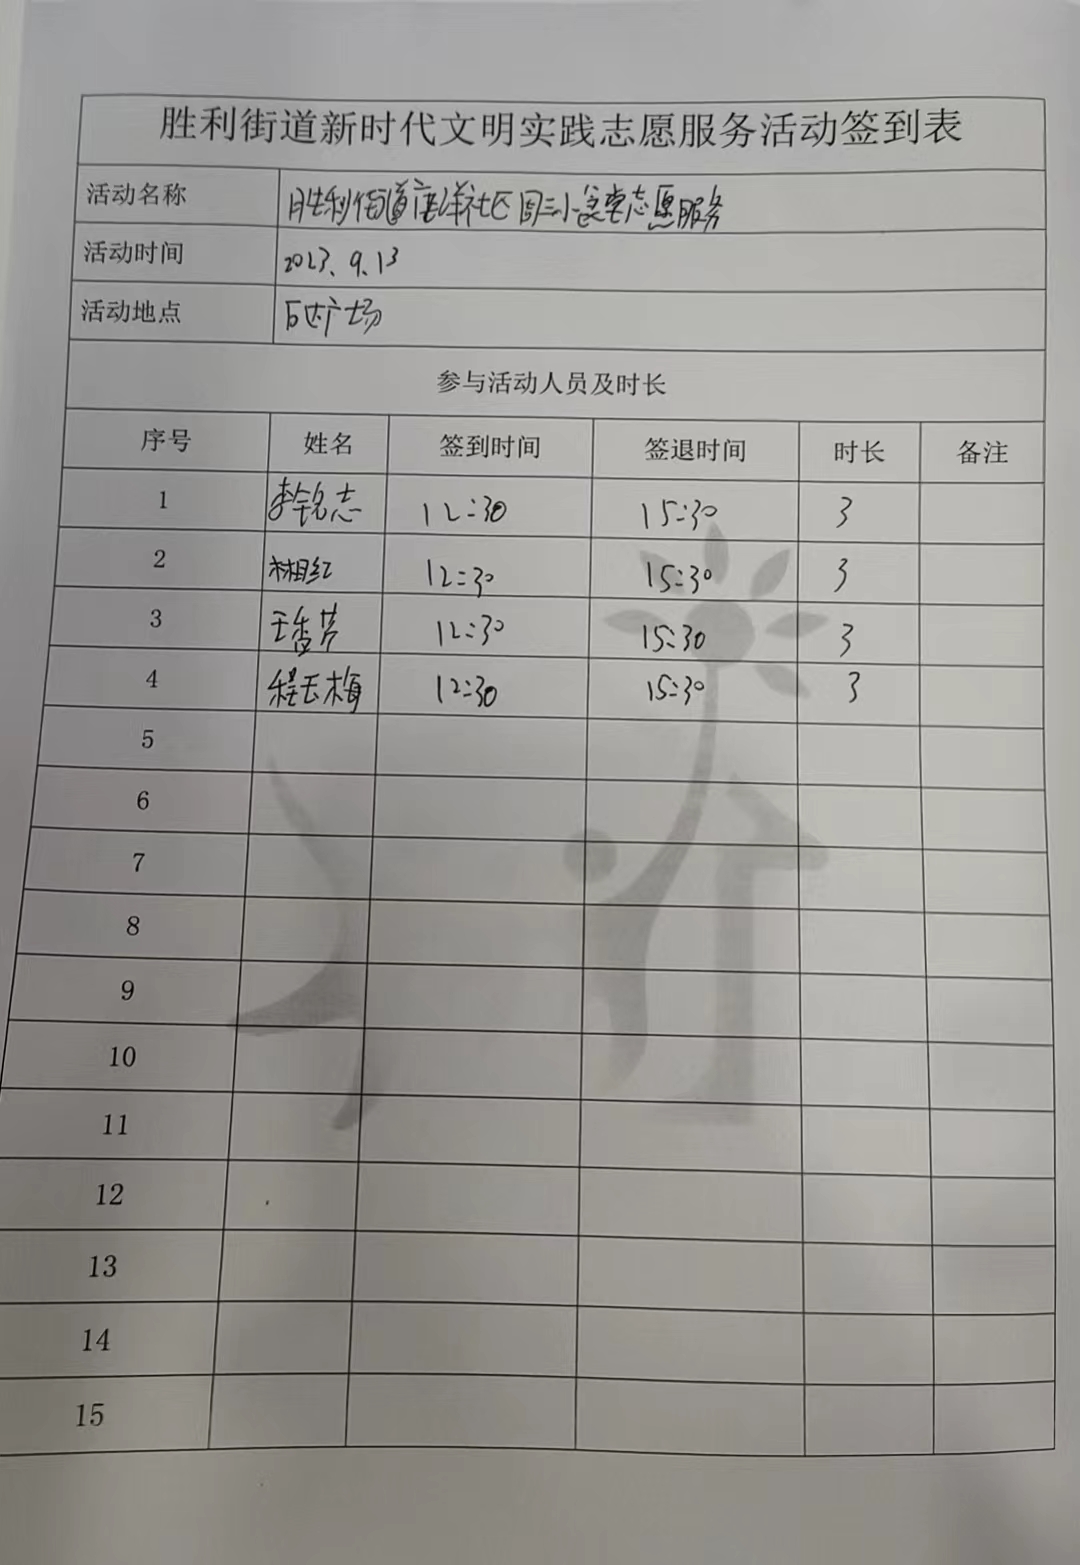 胜利街道新时代文明实践志愿服务活动签到表
活动名称 胜利街道唐洋社区周三小食堂志愿服务
活动时间 2023.9.13
活动地点 石达广场
参与活动人员及时长
序号 姓名 签到时间 签退时间 时长 备注
1 李铭志 12:30 15:30 3
2 林相红 12:30 15:30 3
3 王香芳 12:30 15:30 3
4 程玉梅 12:30 15:30 3
5
6
7
8
9
10
11
12
13
14
15